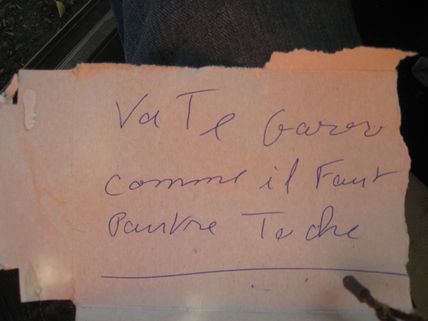 Va Te Garer
comme il Faut
Pauvre Tache